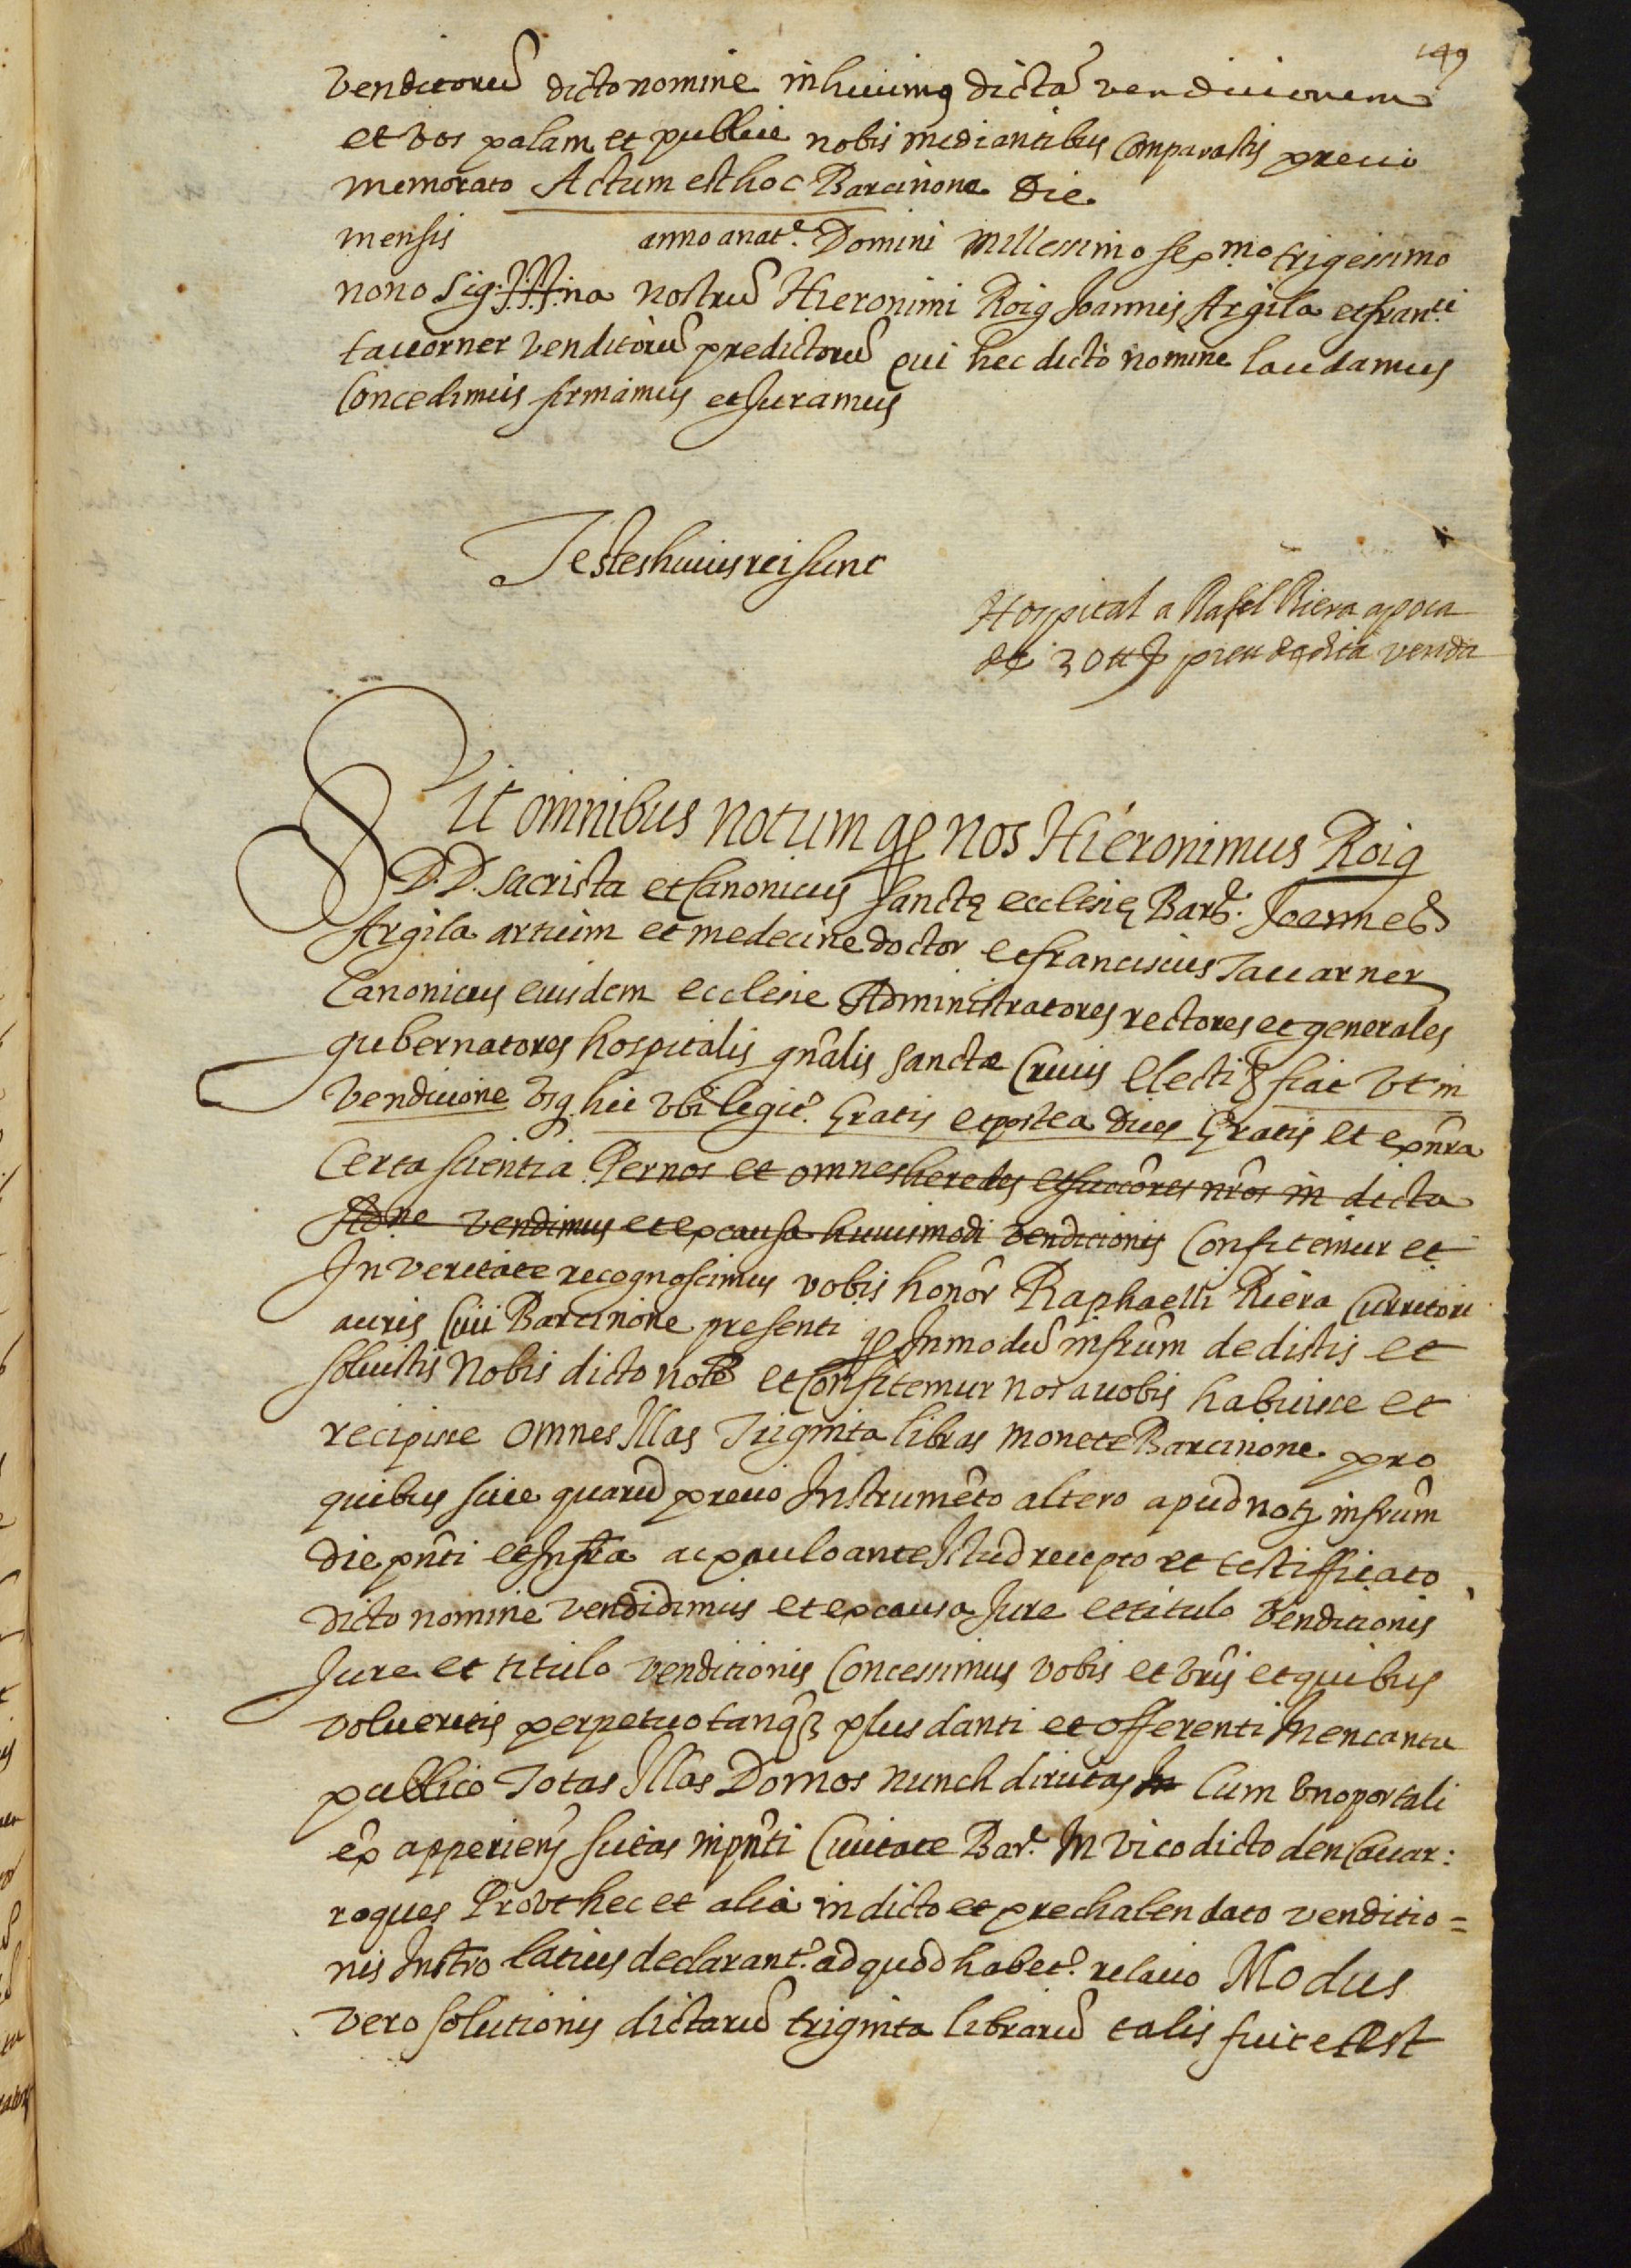 149
venditorũ dicto nomine inhuiusmọ dictã vendicionem
et vos palam et publice nobis mediantibus Comparastis precio
memorato Actum est hoc Barcinone Die
mensis anno a nat.e Domini Millessimo sexmo trigessimo
nono Sig.†††.na nostrũ Hieronimi Roig Joannis Argila et franci
tauorner venditorũ predictorũ qui hec dicto nomine laudamus
Concedimus firmamus et Juramus
Testes huius rei sunt
Hospital a Rafel Riera apoca
de 30 ₶ preu de dita venda
Sit omnibus notum q nos Hieronimus Roig
D.D. sacrista et Canonicus sanctę ecclesię Barñe. Joannes
Argila artium et medecine doctor et franciscus Tauarner
Canonicus eiusdem ecclesie Administratores rectores et generales
gubernatores hospitalis gñalis sancte Crucis Electi & fiat Vt in
Vendicione Vsq hic vbi legit.r Gratis et postea dices Gratis et ex nra
Certa scientia Per nos et omnes heredes et succõres nr̃os in dicta
Adne vendimus et ex causa huiusmodi vendicionis Confitemur et
In veritate recognoscimus vobis honor Raphaelli Riera Curritori
auris Ciui Barcinone presenti q In modũ infrũm dedistis et
soluistis Nobis dicto noĩe et Confitemur nos a vobis habuisse et
recipisse omnes Illas Triginta libras monete Barcinone pro
quibus siue quarũ precio Instrumẽto altero apud notm infrũm
die pñti et Infra ac paulo ante Istud recepto et testifficato
dicto nomine vendidimus et ex causa Jure et titulo vendicionis
Jure et titulo venditionis Concessimus vobis et vr̃is et quibus
volueritis perpetuo tanq̃ plus danti et offerenti In encantu
publico Totas Illas Domos nunch dirutas In Cum vno portali
ex apperiens sitas in pñti Ciuitate Bar.e In vico dicto den Cauar:
roques Prout hec et alia in dicto et prechalendato venditio=
nis Instro latius declarant.r ad quod habet.r relacio Modus
vero solutionis dictarũ triginta librarũ talis fuit et Est